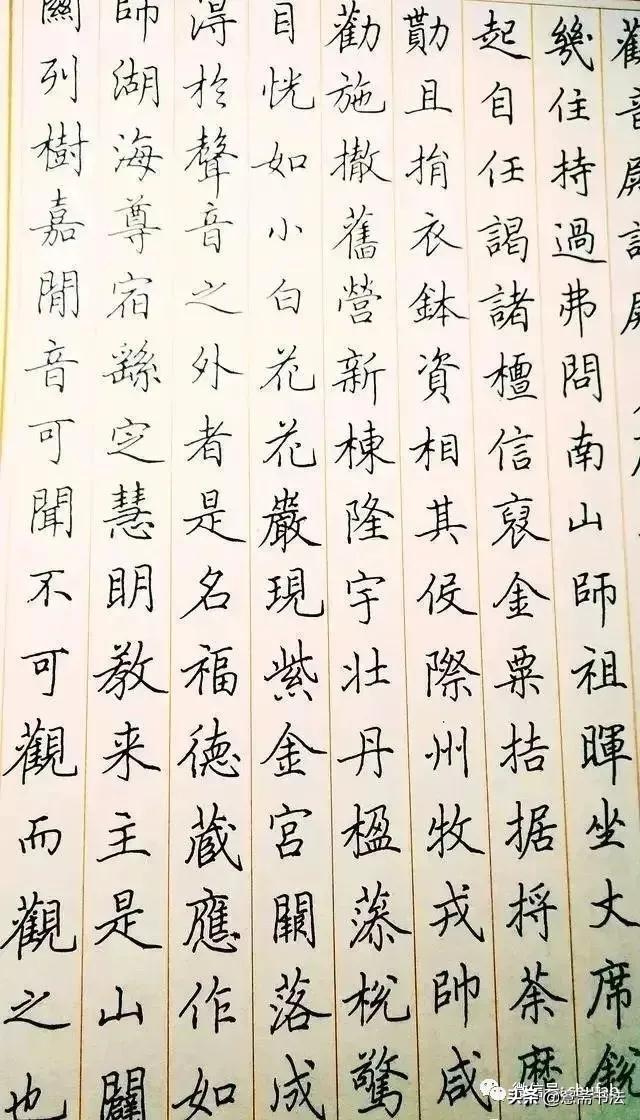 觀音殿記殿
幾住持過弗問南山師祖暉坐丈席銳
起自任謁諸檀信裒金粟拮据捋荼
勩且捐衣鉢資相其役際州牧戎帥咸
勸施撤舊營新棟隆宇壯丹楹藻梲驚
目恍如小白花花嚴現紫金宮闕落成
淂於聲音之外者是名福德蔵應作如
師湖海尊宿繇定慧明教来主是山闡
列樹嘉音可聞不可觀而觀之也
微信号
书法